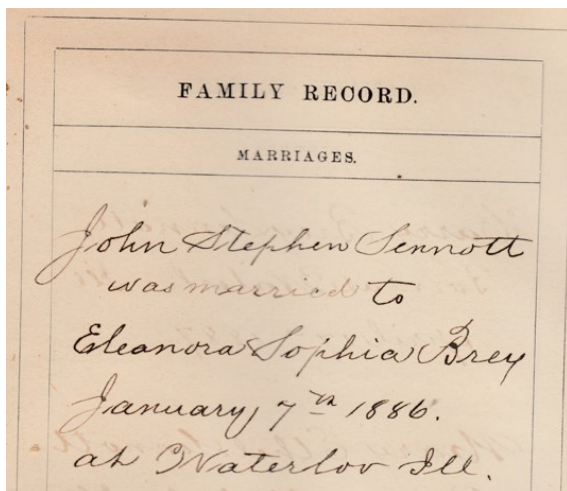 FAMILY RECORD.
MARRIAGES.
John Stephen Sennott
was married to
Eleanora Sophia Brey
January 7th 1886.
at Waterloo Ill.